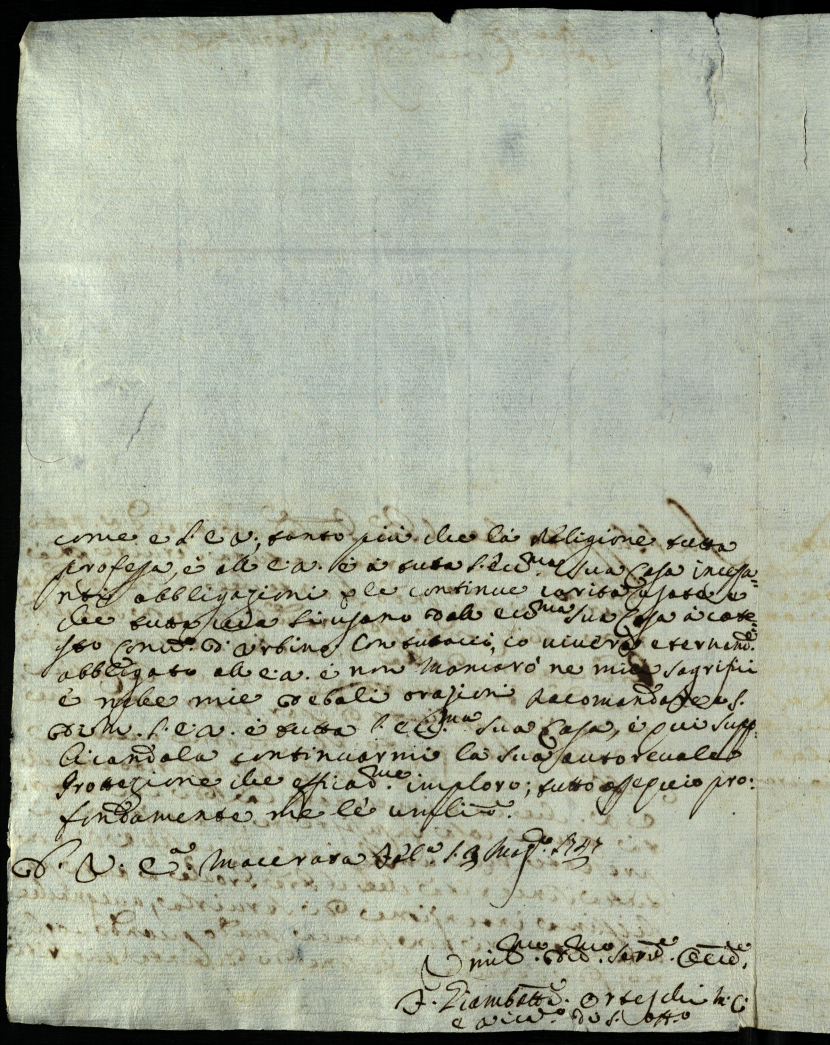 come è l'E. V., tanto più che la Religione tutta
professa, e all'E. V. e a tutta l'Ecc.ma sua Casa incesa-
nti obbligazioni per le continue carità
che tuttavia si usano dall' Ecc.ma sua Casa a cote-
sto d'Urbino. Contutocciò, io viverò eternam.e
obbligato all'E. V. e non mancarò ne miei sagrifici
e nelle mie debboli orazioni racomandare a S.
D. M. l'E. V. e tutta l'Ecc.ma sua Casa, e qui supp-
licandola continuarmi la sua autorevale
Prottezione che efficacem.e imploro; tutto ossequio pro-
fondamente me le umilio.
D. V. E.a Macerata 3 Mag.o 1747
Umil.mo Dev.mo Obb.mo
F. Giambatta. Orteschi M. C.